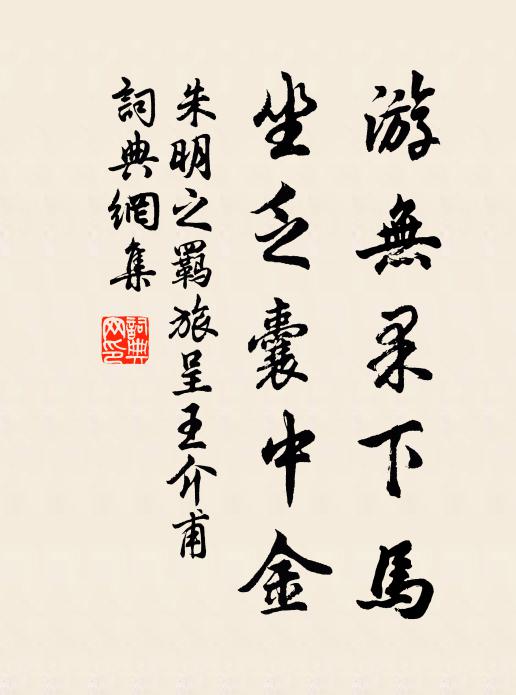 游無果下馬
坐乏囊中金
朱明之羈旅呈王介甫
詞典網集
詞典
网印